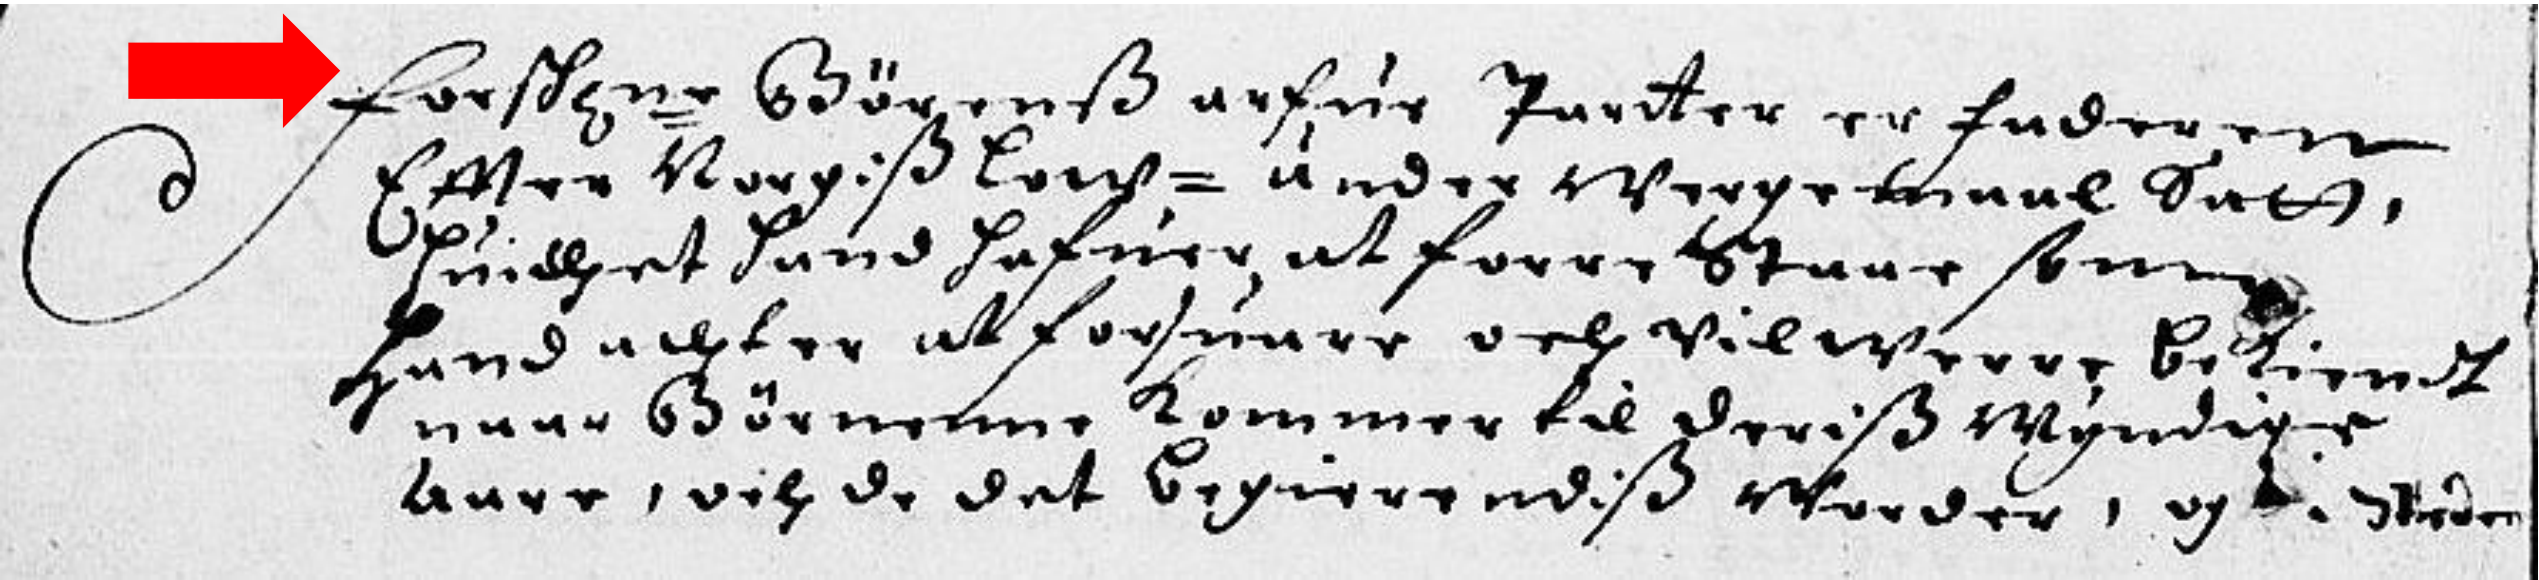 forschne Börenß arfüe Parter er faderen
Effter Norgiß Low= ünder Wergemaal Satt,
huilchet hand hafuer at forre Staae som
hand achter at forsuare och vil werre bekiendt
naar Börnenne kommer til deriß Myndige
aare, och de det begierendiß worder, og